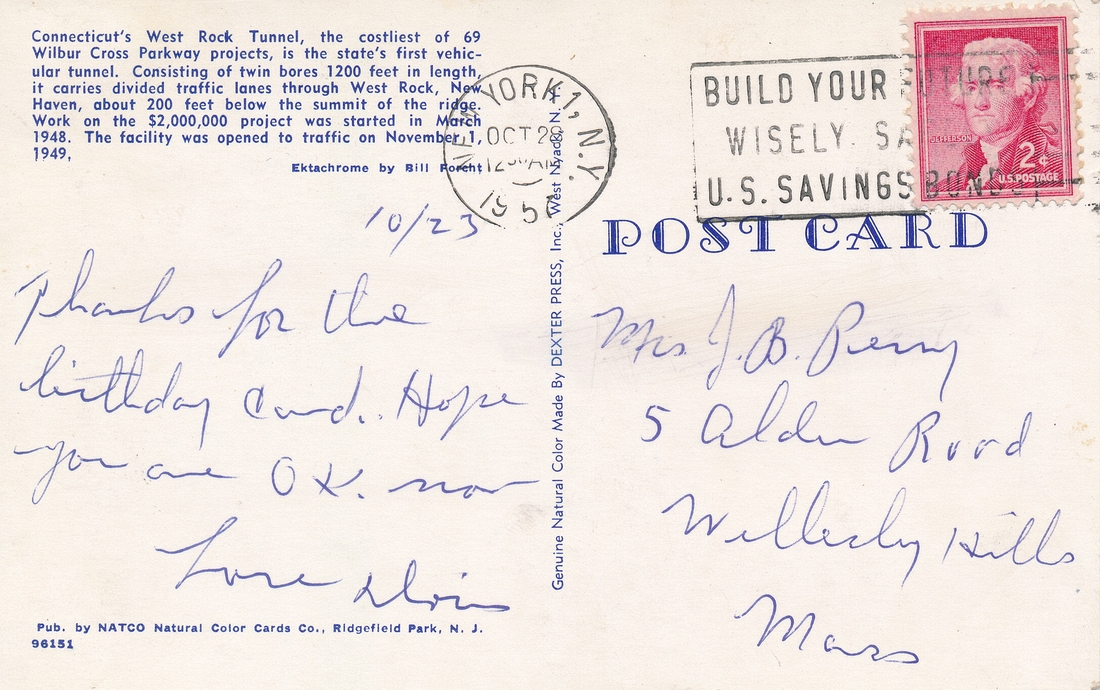 Connecticut's West Rock Tunnel, the costliest of 69
Wilbur Cross Parkway projects, is the state's first vehic-
ular tunnel. Consisting of twin bores 1200 feet in length,
it carries divided traffic lanes through West Rock, New
Haven, about 200 feet below the summit of the ridge.
Work on the $2,000,000 project was started in March
1948. The facility was opened to traffic on November 1,
1949,
Ektachrome by Bill Forcht
10/23
Thanks for the
birthday card. Hope
you are OK. now
Love Doris
Pub. by NATCO Natural Color Cards Co., Ridgefield Park, N. J.
96151
Genuine Natural Color Made By DEXTER PRESS, Inc., West Nyack, N. Y.
NEW YORK 1, N.Y.
OCT
AM
BUILD YOUR FUTURE
WISELY
U.S. SAVINGS BONDS
JEFFERSON
2¢
U.S. POSTAGE
POST CARD
Mrs. J. B. Perry
5 Alden Road
Wellesley Hills
Mass